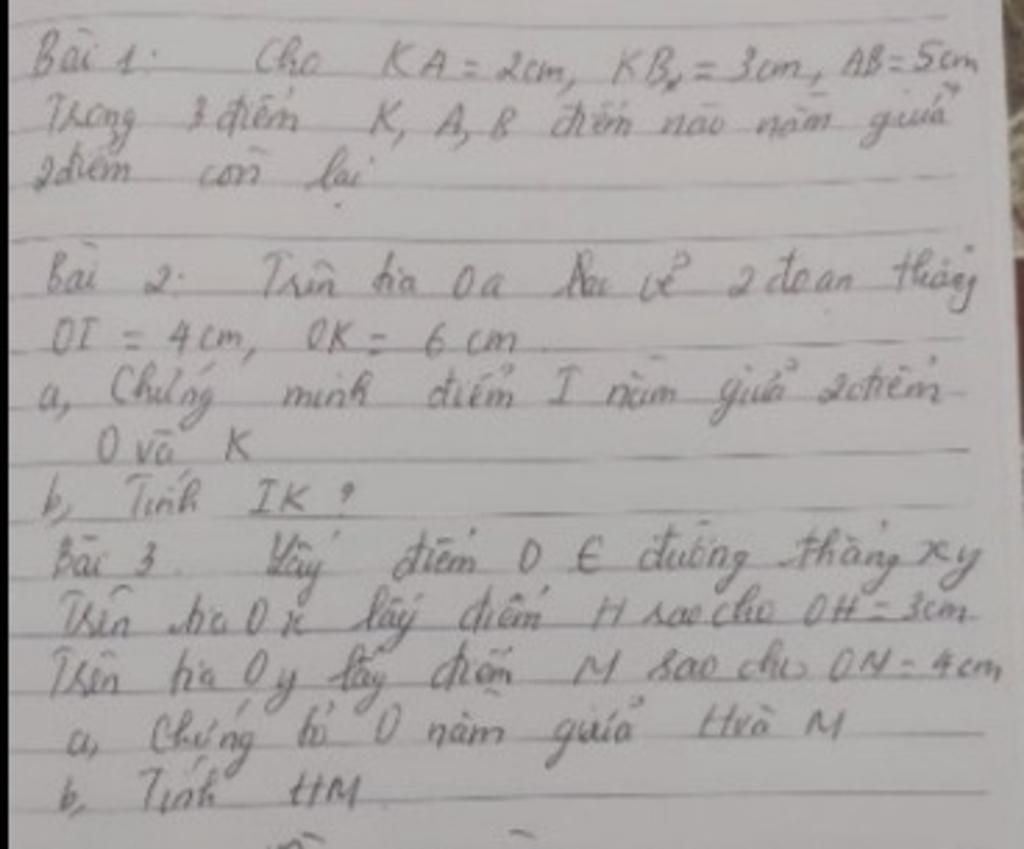 Bài 1: Cho KA = 2cm, KB = 3cm, AB = 5cm
Trong 3 điểm K, A, B điểm nào nằm giữa
2 điểm còn lại
Bài 2: Trên tia Oa vẽ 2 đoạn thẳng
OI = 4cm, OK = 6 cm
a, Chứng minh điểm I nằm giữa 2 điểm
O và K
b, Tính IK ?
Bài 3. Lấy điểm O ∈ đường thẳng xy
Trên tia Ox lấy điểm H sao cho OH = 3cm
Trên tia Oy lấy điểm M sao cho OM = 4cm
a, Chứng tỏ O nằm giữa H và M
b, Tính HM